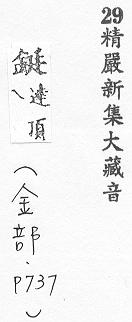 29精嚴新集大藏音
鍵
達頂
（金部．p737）